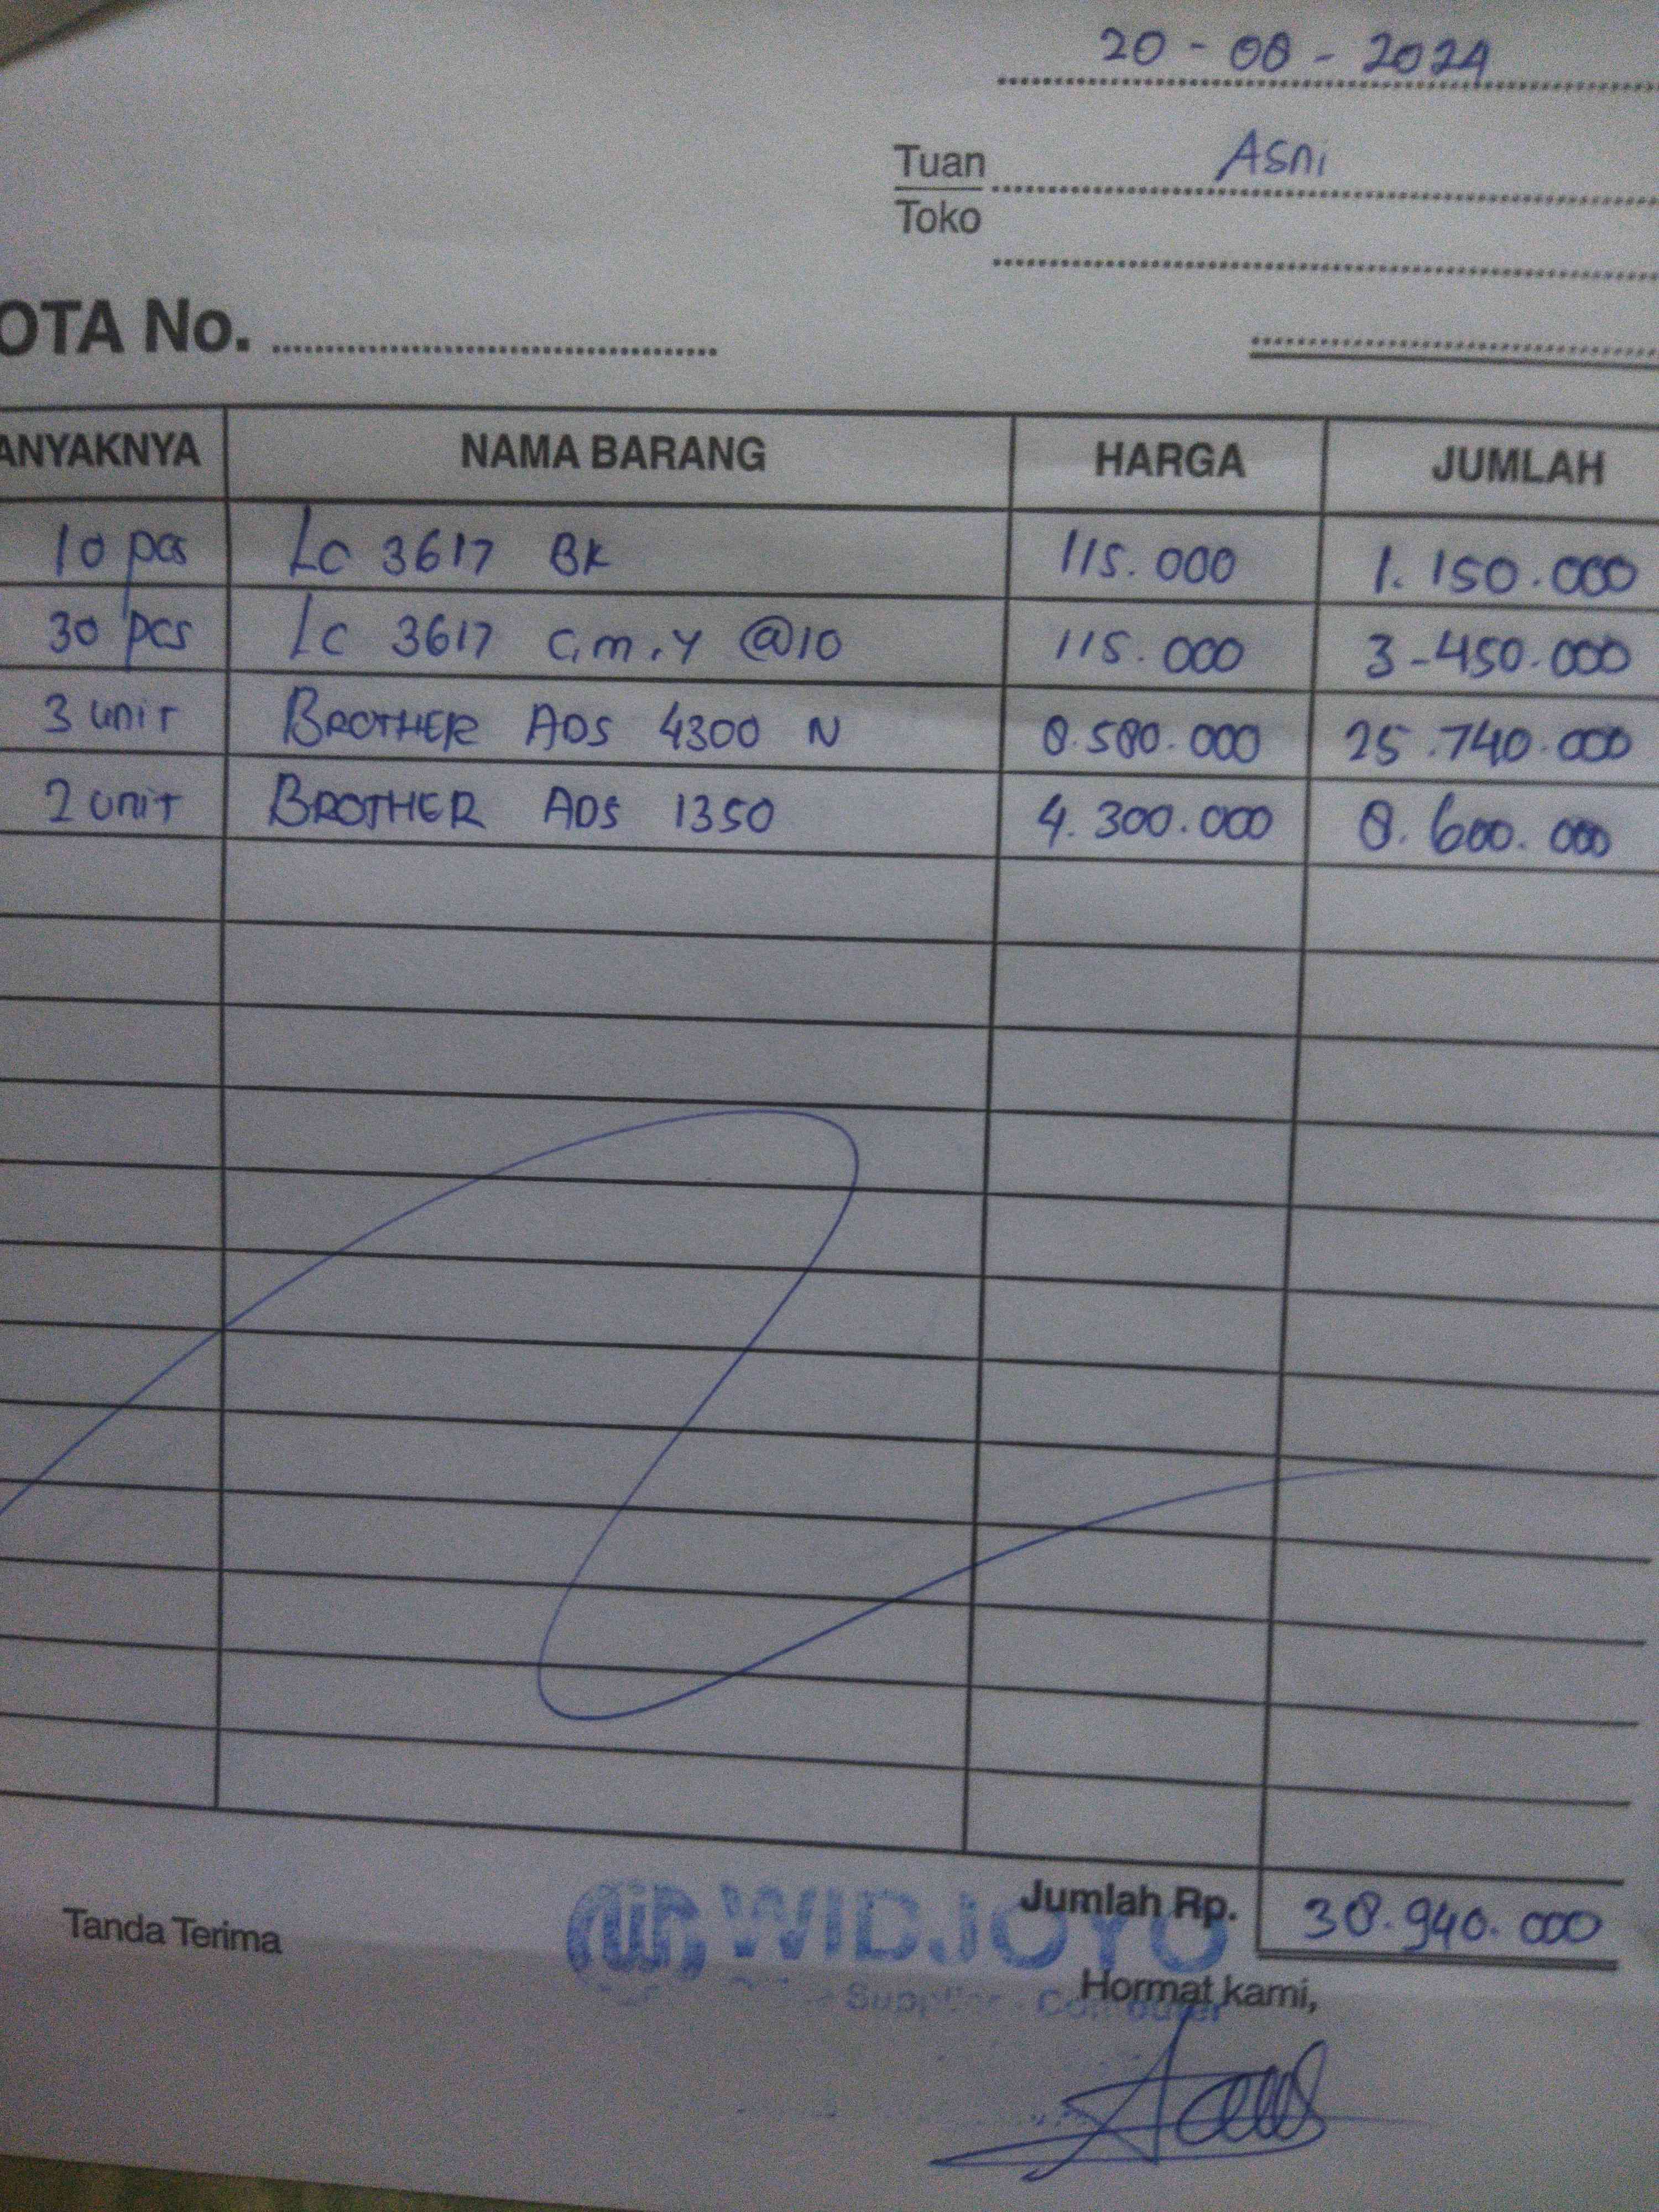 20 - 08 - 2024
Tuan Asni
Toko
OTA No.
ANYAKNYA NAMA BARANG HARGA JUMLAH
10 pcs Lc 3617 BK 115.000 1.150.000
30 pcs Lc 3617 C,m,Y @10 115.000 3-450.000
3 unit BROTHER ADS 4300 N 8.580.000 25.740.000
2 unit BROTHER ADS 1350 4.300.000 8.600.000
Jumlah Rp. 38.940.000
Tanda Terima
WIDJOYO
Hormat kami,
Supplier - Computer